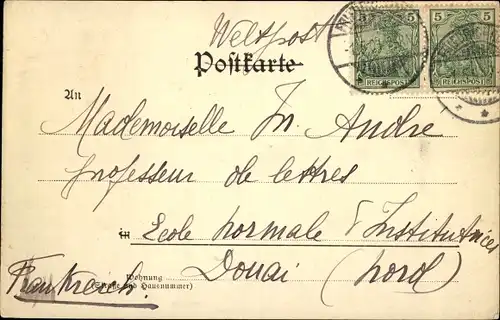 Weltpost
5 5
5
REICHSPOST
REICHSPOST
Postkarte
An
Mademoiselle Jn. Andre
professeur de lettres
in Ecole normale d'Institutrices
Douai (Nord)
Frankreich.
Wohnung
(Straße und Hausnummer)